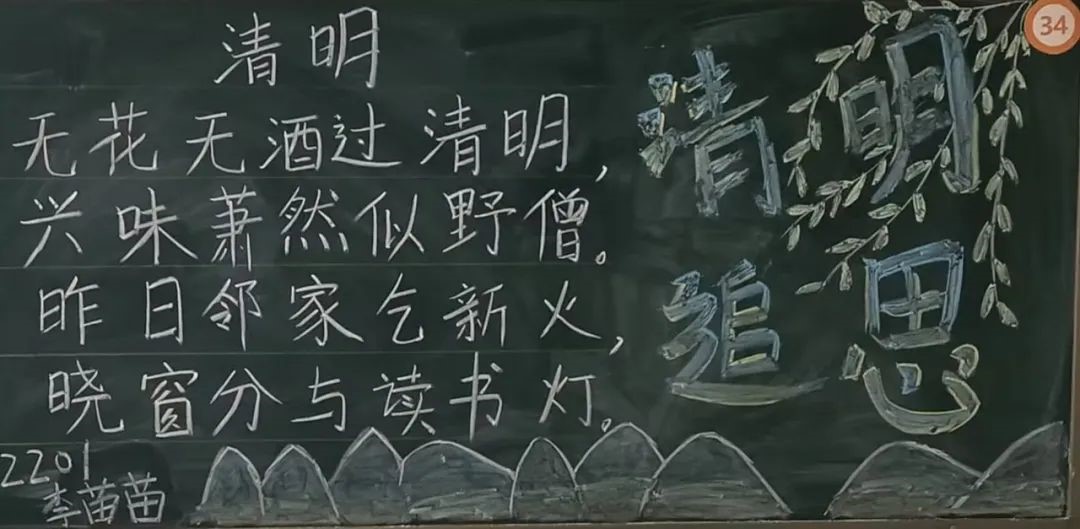 清明
无花无酒过清明，
兴味萧然似野僧。
昨日邻家乞新火，
晓窗分与读书灯。
2201
李苗苗
清明
追思
34